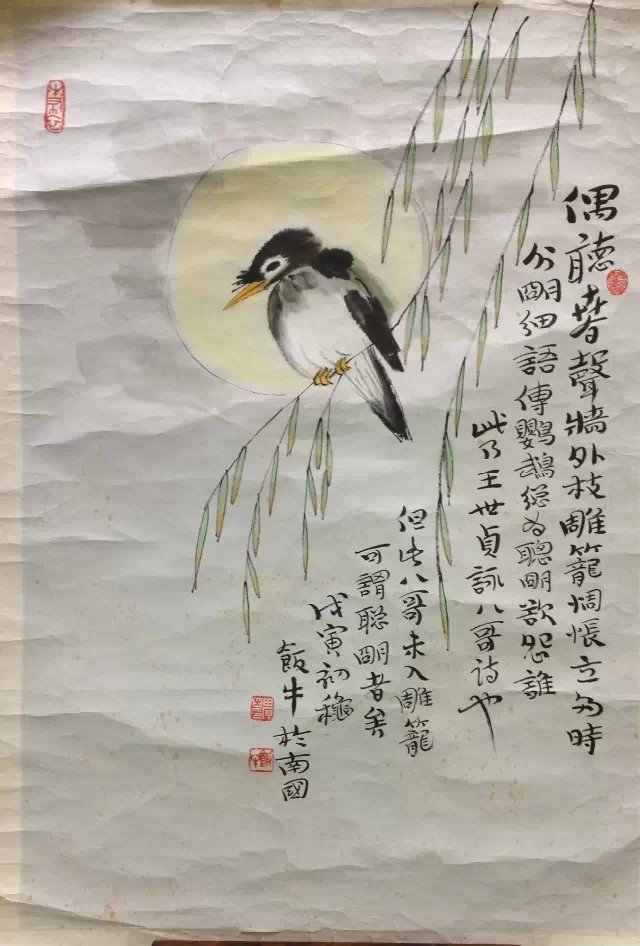 偶聽春聲牆外枝雕籠惆悵立多時
分明細語傳鸚鵡總为聰明欲怨誰
此乃王世貞詠八哥詩也
但此八哥未入雕籠
可謂聰明者矣
戊寅初穐
飯牛於南國